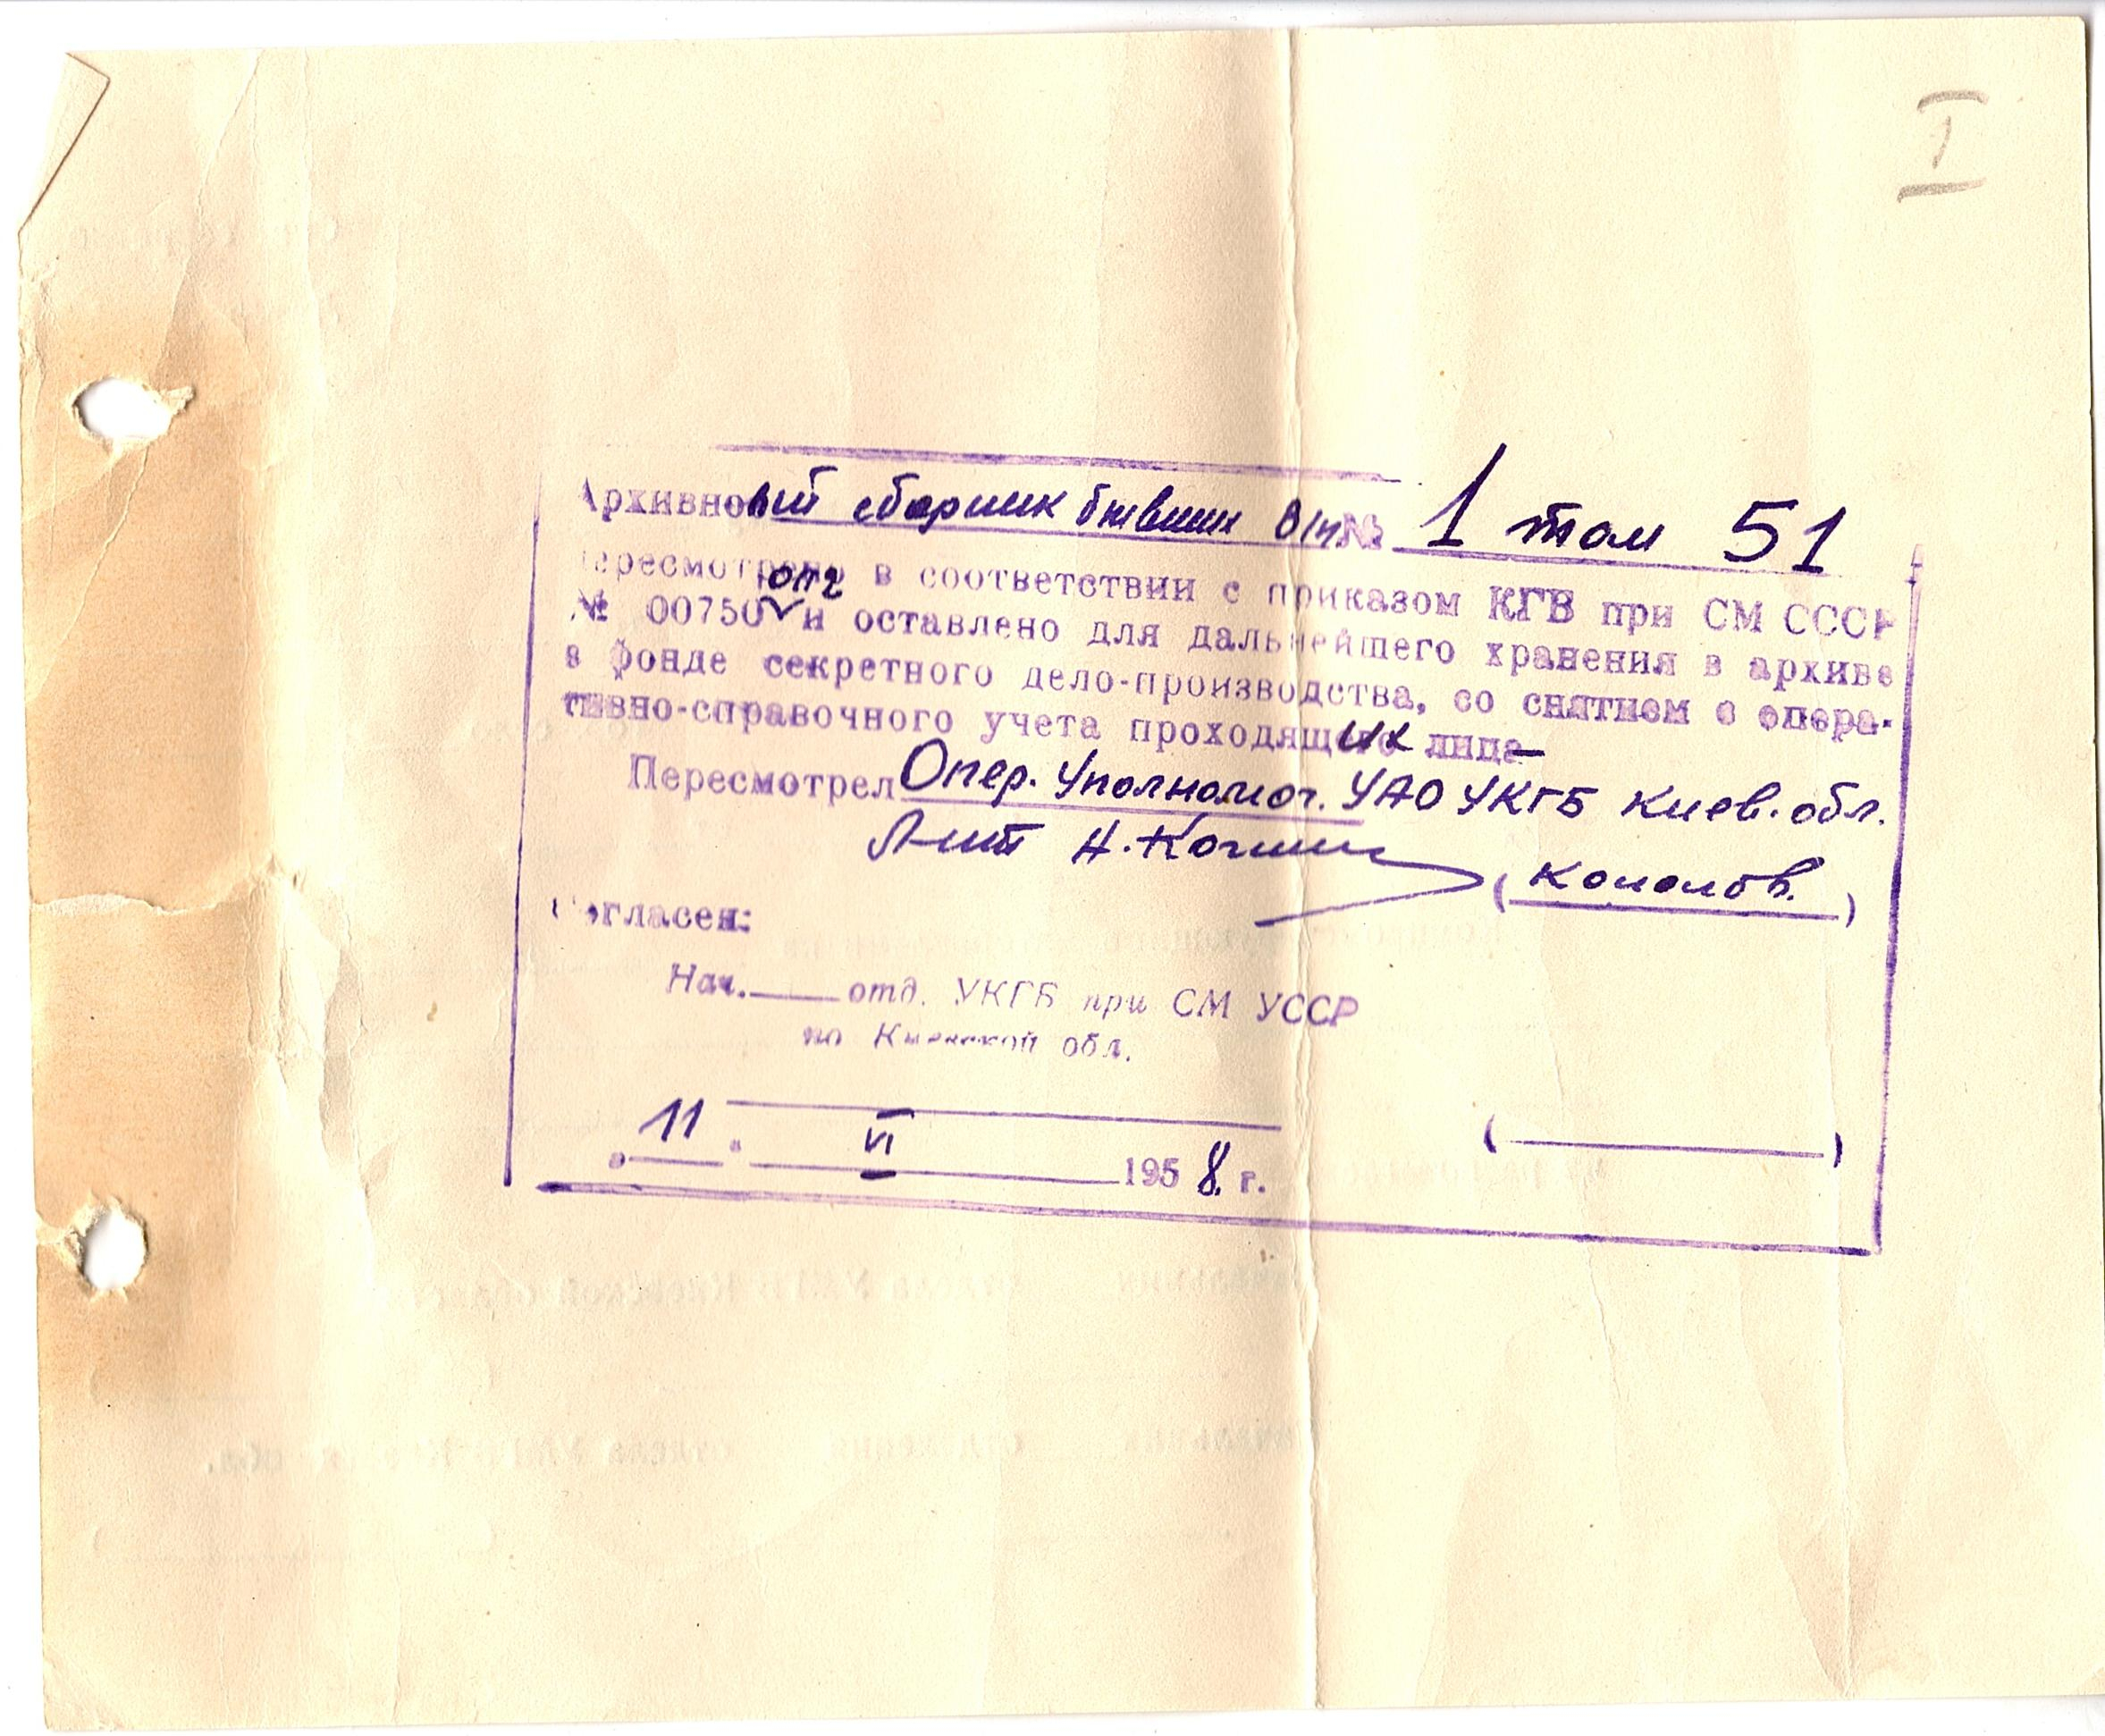 I
Архивный сборник бывших в/п № 1 том 51
Пересмотрено в соответствии с приказом КГБ при СМ СССР
ОП2
№ 00750 и оставлено для дальнейшего хранения в архиве
в фонде секретного дело-производства, со снятием с опера-
тивно-справочного учета проходящих лиц
Пересмотрел Опер. Уполномоч. УАО УКГБ Киев. обл.
Н.
Согласен:
Нач. отд. УКГБ при СМ УССР
по Киевской обл.
11 VI 1958 г.